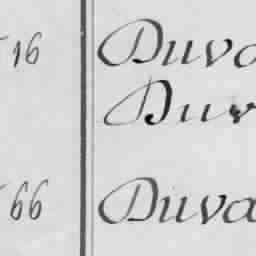 16 Duva
Duv
66 Duva